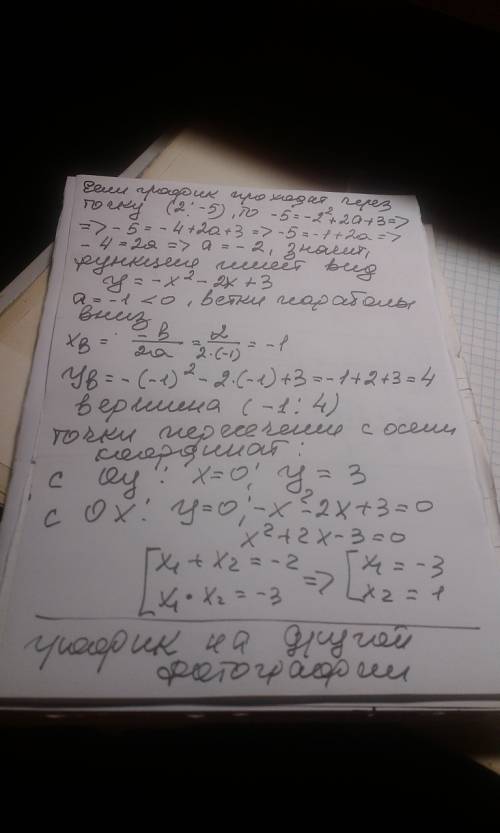 Если график проходит через
точку (2; -5), то -5=-2²+2a+3=>
=>-5=-4+2a+3=>-5=-1+2a=>
-4=2a=>a=-2, значит,
функция имеет вид
y=-x²-2x+3
a=-1<0, ветки параболы
вниз
xв = -в/2a = 2/2·(-1) = -1
yв=-(-1)²-2·(-1)+3=-1+2+3=4
вершина (-1; 4)
точки пересечения с осями
координат:
с Oy: x=0; y=3
с Ox: y=0; -x²-2x+3=0
x²+2x-3=0
[x₁+x₂=-2 => [x₁=-3
[x₁·x₂=-3 [x₂=1
график на другой
фотографии